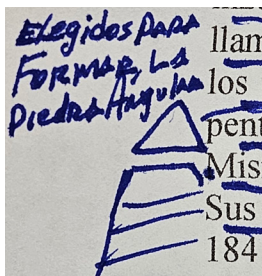 Elegidos PARA
FORMAR, LA
Piedra Angular
llam
los
pent
Mis
Sus
184